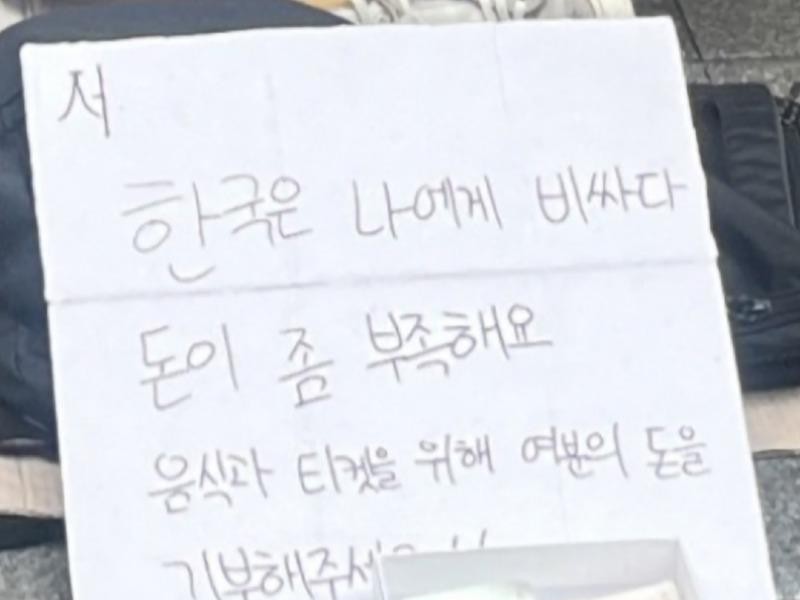 저
한국은 나에게 비싸다
돈이 좀 부족해요
음식과 티켓을 위해 여분의 돈을
기부해주세